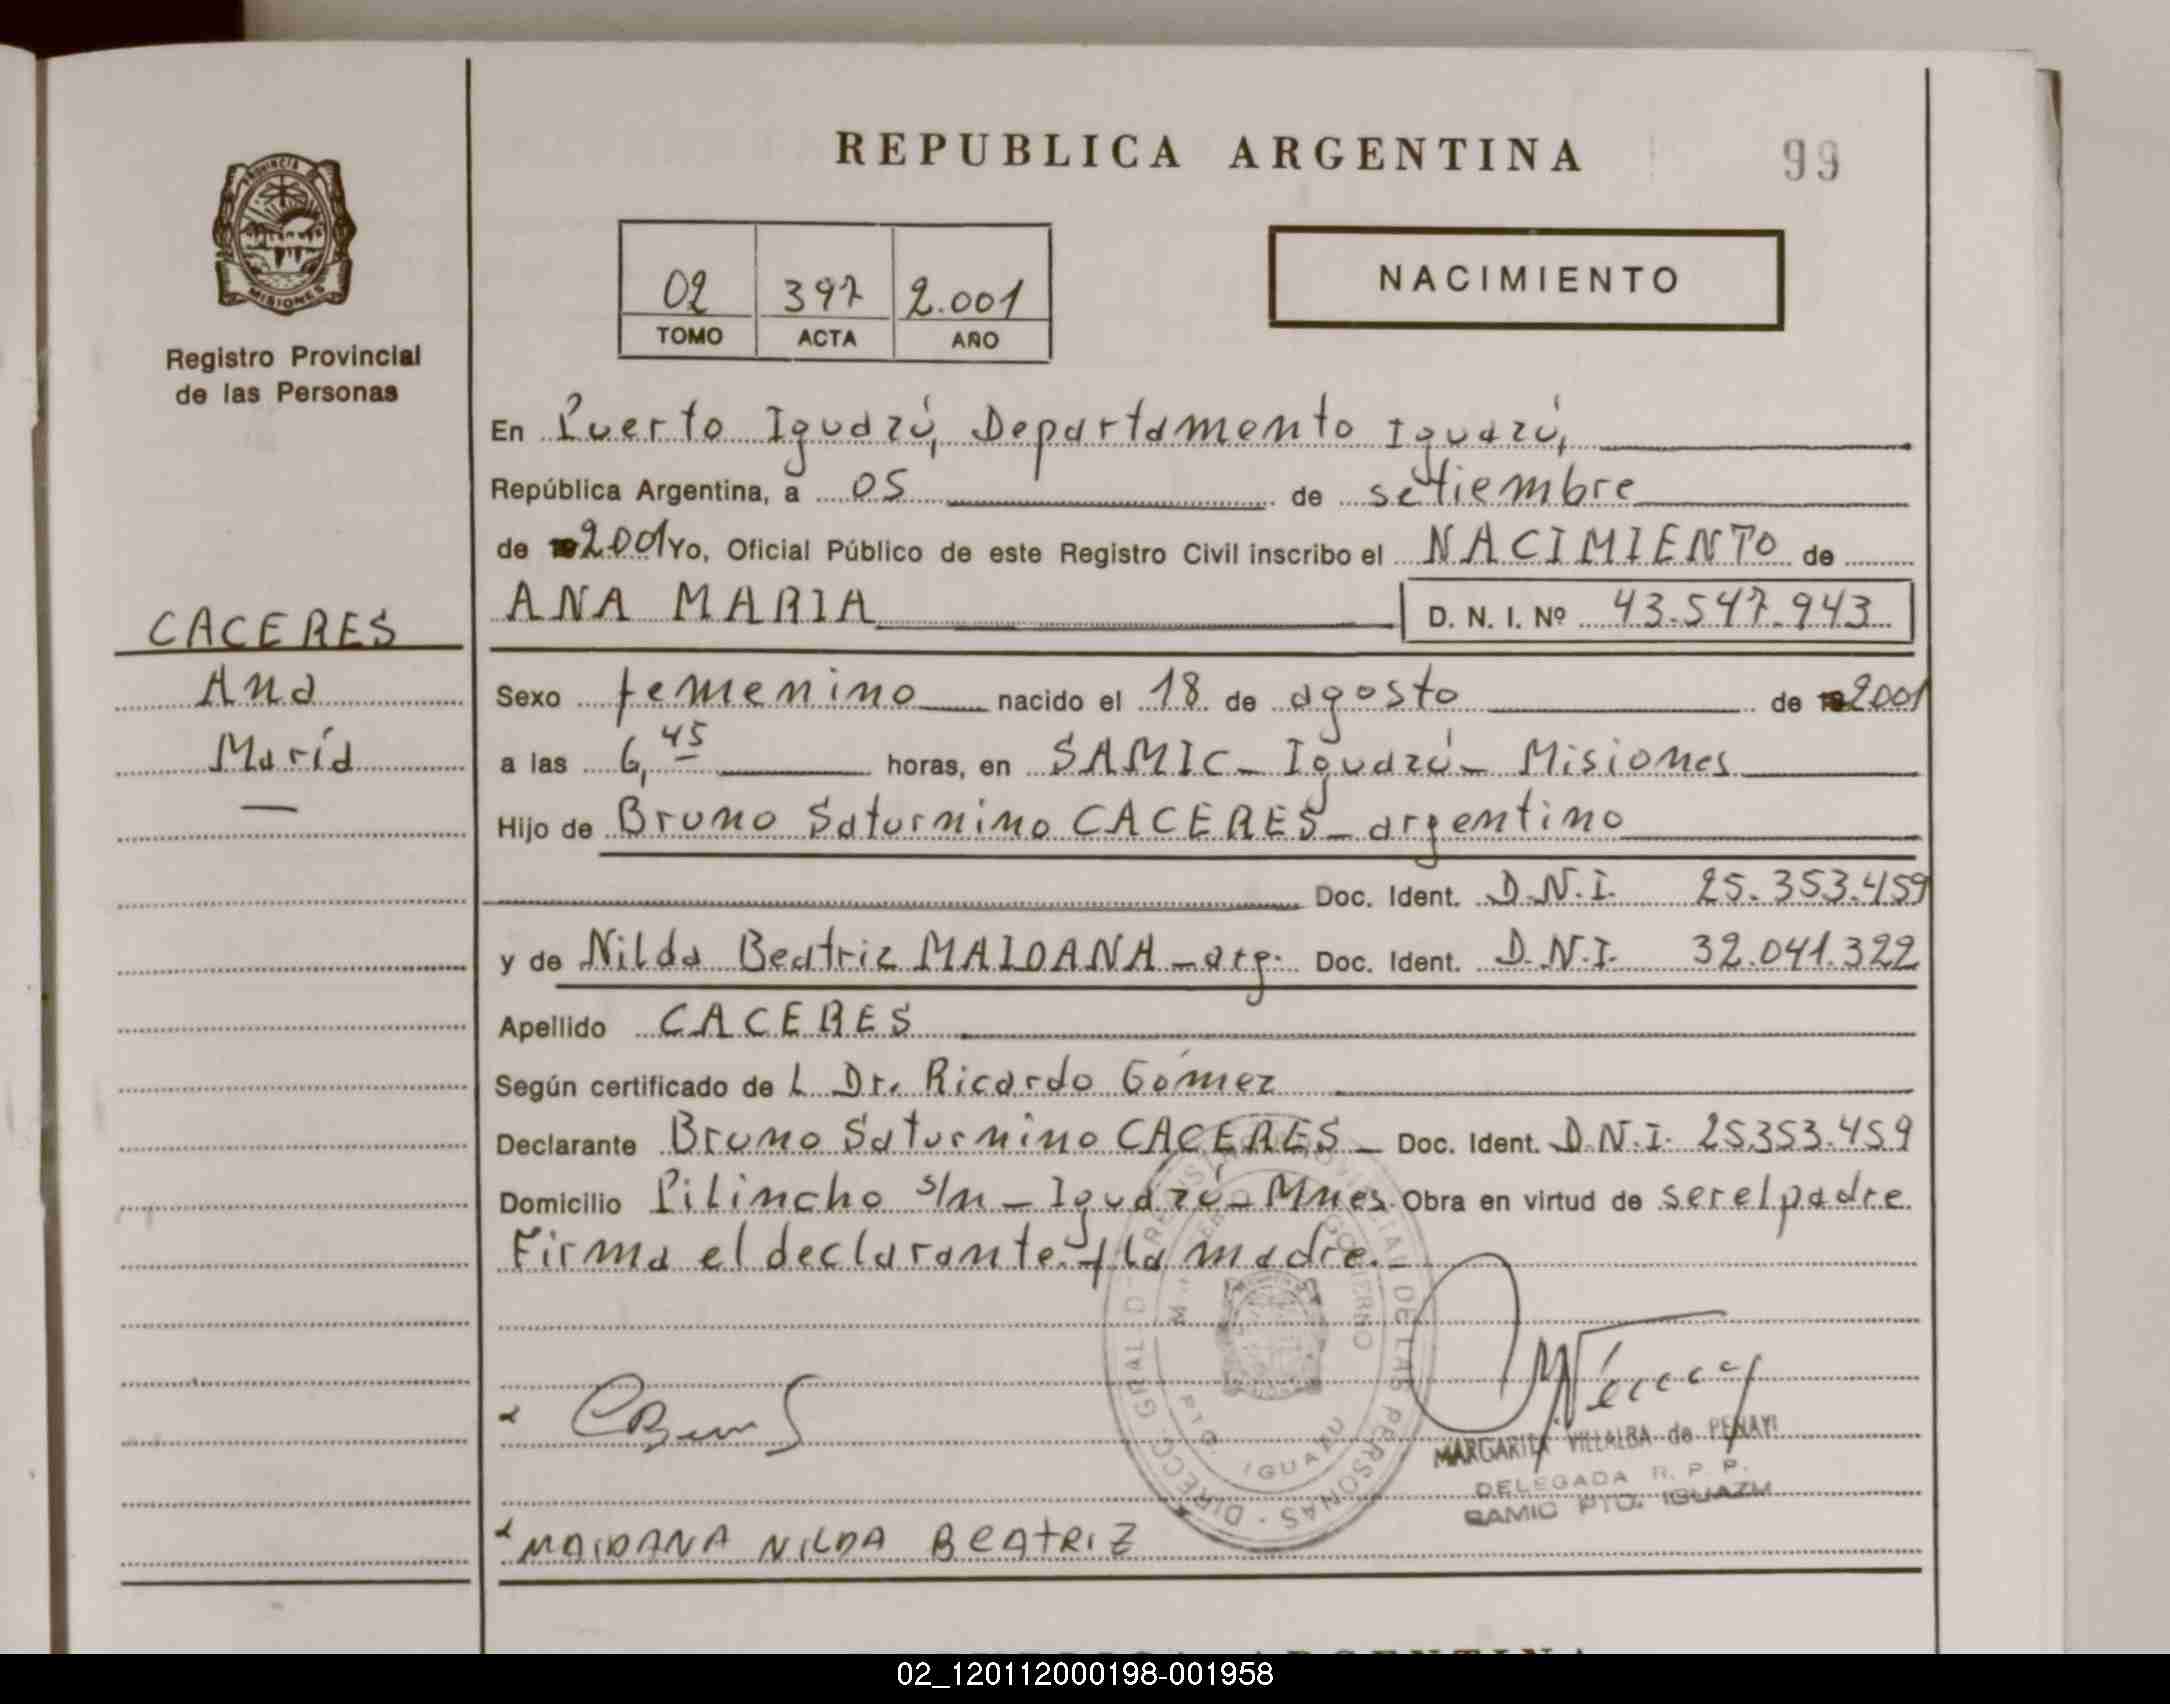 REPUBLICA ARGENTINA
99
PROVINCIA DE
MISIONES
Registro Provincial
de las Personas
02 397 2.001
TOMO ACTA AÑO
NACIMIENTO
En Puerto Iguazú, Departamento Iguazú,
República Argentina, a 05 de setiembre
de 2001 Yo, Oficial Público de este Registro Civil inscribo el NACIMIENTO de
ANA MARIA D. N. I. Nº 43.547.943
CACERES
Ana
María
Sexo femenino nacido el 18 de agosto de 2001
a las 6,45 horas, en SAMIC - Iguazú - Misiones
Hijo de Bruno Saturnino CACERES - argentino
Doc. Ident. D.N.I. 25.353.459
y de Nilda Beatriz MAIDANA - arg. Doc. Ident. D.N.I. 32.041.322
Apellido CACERES
Según certificado de L Dr. Ricardo Gómez
Declarante Bruno Saturnino CACERES - Doc. Ident. D.N.I. 25353.459
Domicilio Pilincho s/n - Iguazú - Mnes. Obra en virtud de ser el padre.
Firma el declarante y la madre.-
DIRECC. GRAL. DE LAS PERSONAS
GOBIERNO
PTO. IGUAZU
MARGARITA VILLALBA de PENAYI
DELEGADA R. P. P.
SAMIC PTO. IGUAZU
MAIDANA NILDA BEATRIZ
02_120112000198-001958